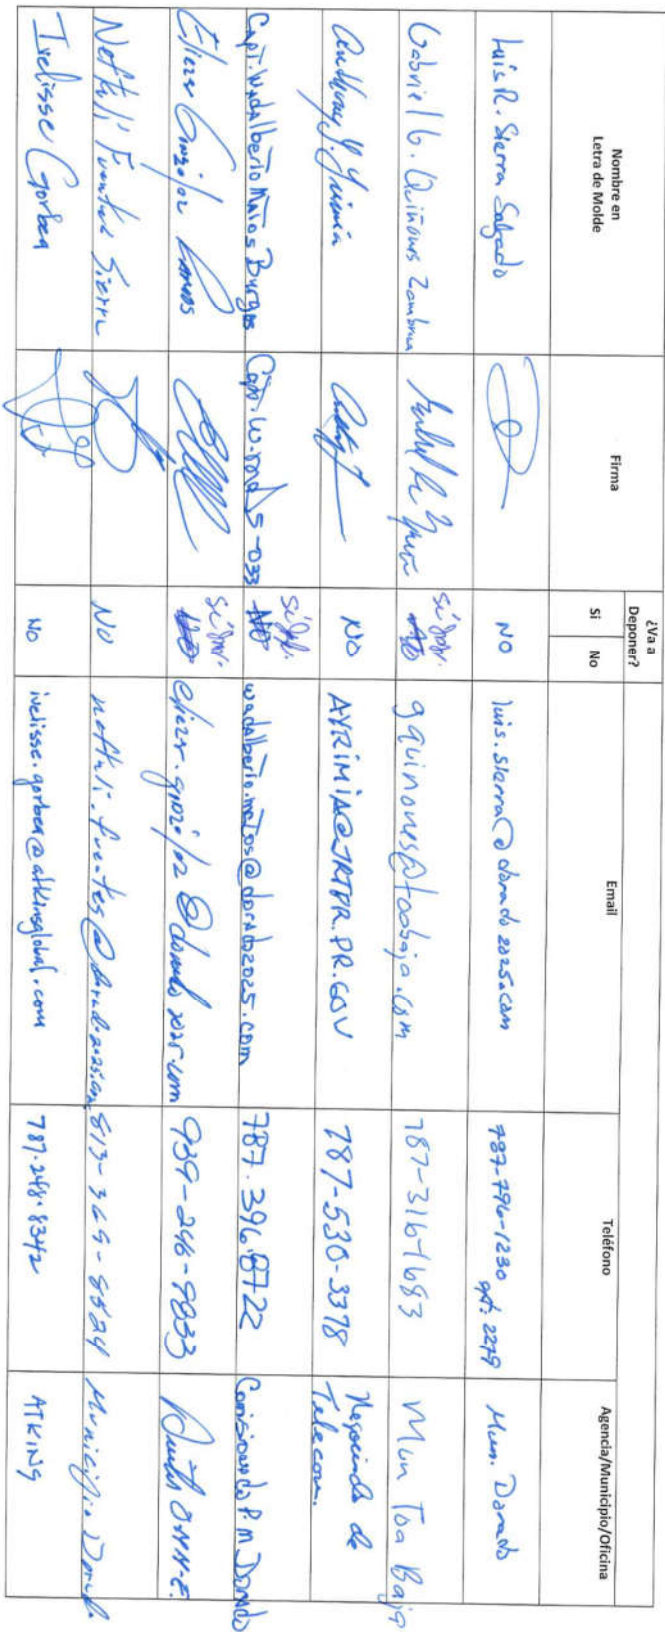 Nombre en
Letra de Molde
Firma
¿Va a
Deponer?
Si No
Email
Teléfono
Agencia/Municipio/Oficina
Luis R. Sierra Salgado
NO
luis.sierra@dorado2025.com
787-796-1230 ext: 2279
Mun. Dorado
Gabriel G. Quiñones Zambrana
gquinones@toabaja.com
787-316-1683
Mun Toa Baja
NO
787-530-3378
Negociado de
Telecom.
Capt. Wadalberto Matos Burgos
NO
wadalberto.matos@dorado2025.com
787.396.8722
Comisionado P.M Dorado
Eliezer
939-246-9833
Neftali Fuentes Sierra
NO
neftali.fuentes@dorado2025.com
Municipio Dorado
Ivelisse Gorbea
NO
ivelisse.gorbea@atkinsglobal.com
787.248.8342
ATKINS